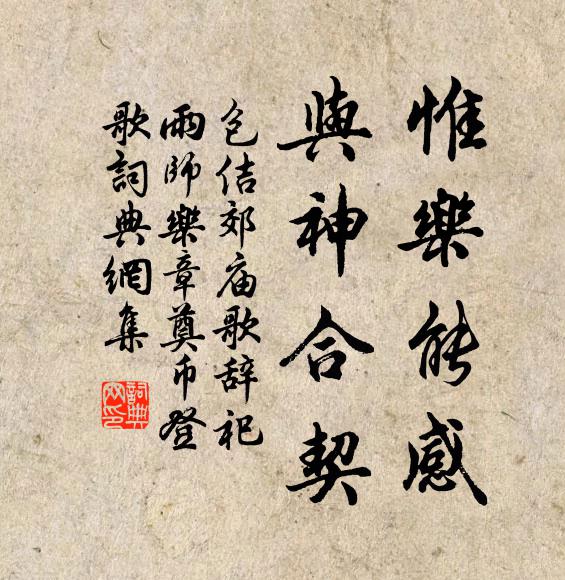 惟樂能感
與神合契
包佶郊庙歌辞祀
雨師樂章奠币登
歌詞典網集
詞典
网印